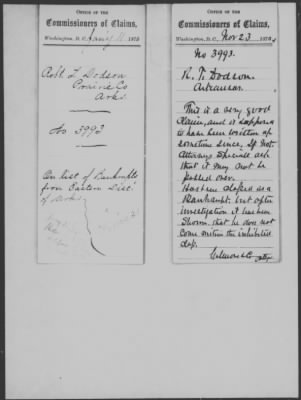 OFFICE OF THE
Commissioners of Claims,
Washington, D. C. 187
Robt. T. Dodson
Prairie Co
Arks.
No 3993
On list of Bankrupts
from Eastern Dist.
of Arks
OFFICE OF THE
Commissioners of Claims,
Washington, D. C. Nov 23 187
No 3993.
R. T. Dodson.
Arkansas.
This is a very good
Claim, and is supposed
to have been written up
sometime since. If not
Attorneys especially ask
that it may not be
passed over.
Has been classed as a
Bankrupt, but after
investigation it has been
shown that he does not
come within the prohibited
class.
Gilmore & Co
attys